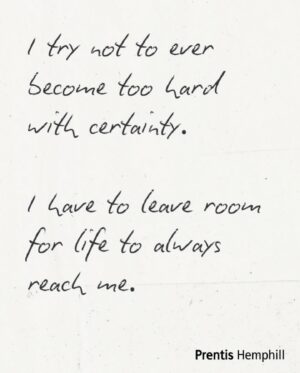 I try not to ever
become too hard
with certainty.
I have to leave room
for life to always
reach me.
Prentis Hemphill